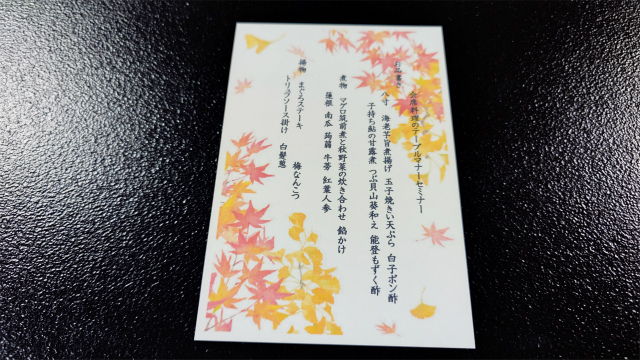 会席料理のテーブルマナーセミナー
お品書き
八寸 海老芋旨煮揚げ 玉子焼き 天ぷら 白子ポン酢
子持ち鮎の甘露煮 つぶ貝山葵和え 能登もずく酢
煮物 マグロ筑前煮と秋野菜の炊き合わせ 餡かけ
蓮根 南瓜 蒟蒻 牛蒡 紅葉人参
揚物 まぐろステーキ 梅なんこう
トリュフソース掛け 白髪葱